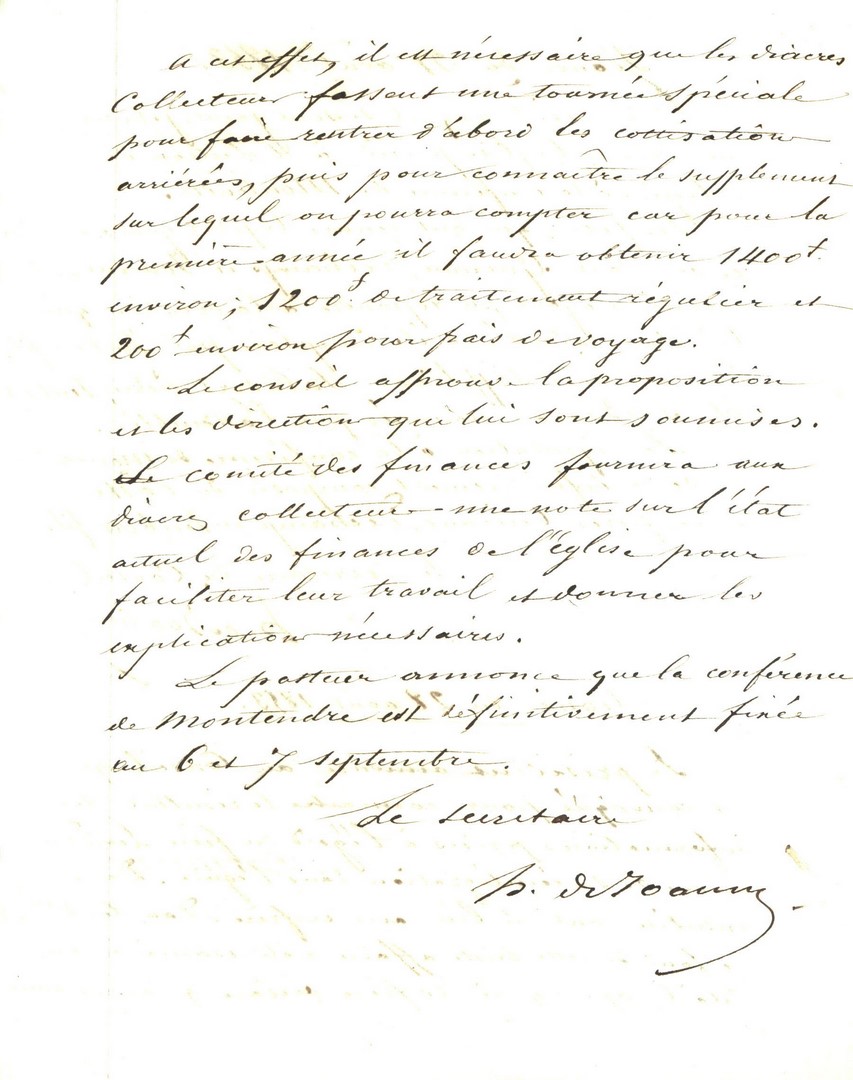 A cet effet, il est nécessaire que les diacres
Collecteurs fassent une tournée spéciale
pour faire rentrer d'abord les cottisations
arriérées, puis pour connaître le supplément
sur lequel on pourra compter car pour la
première année il faudra obtenir 1400f.
environ; 1200f. de traitement régulier et
200f environ pour frais de voyage.
Le conseil approuve la proposition
et les directions qui lui sont soumises.
Le comité des finances fournira aux
diacres collecteurs une note sur l'état
actuel des finances de l'église pour
faciliter leur travail et donner les
explications nécessaires.
Le pasteur annonce que la conférence
de Montendre est définitivement fixée
au 6 et 7 septembre.
Le secrétaire